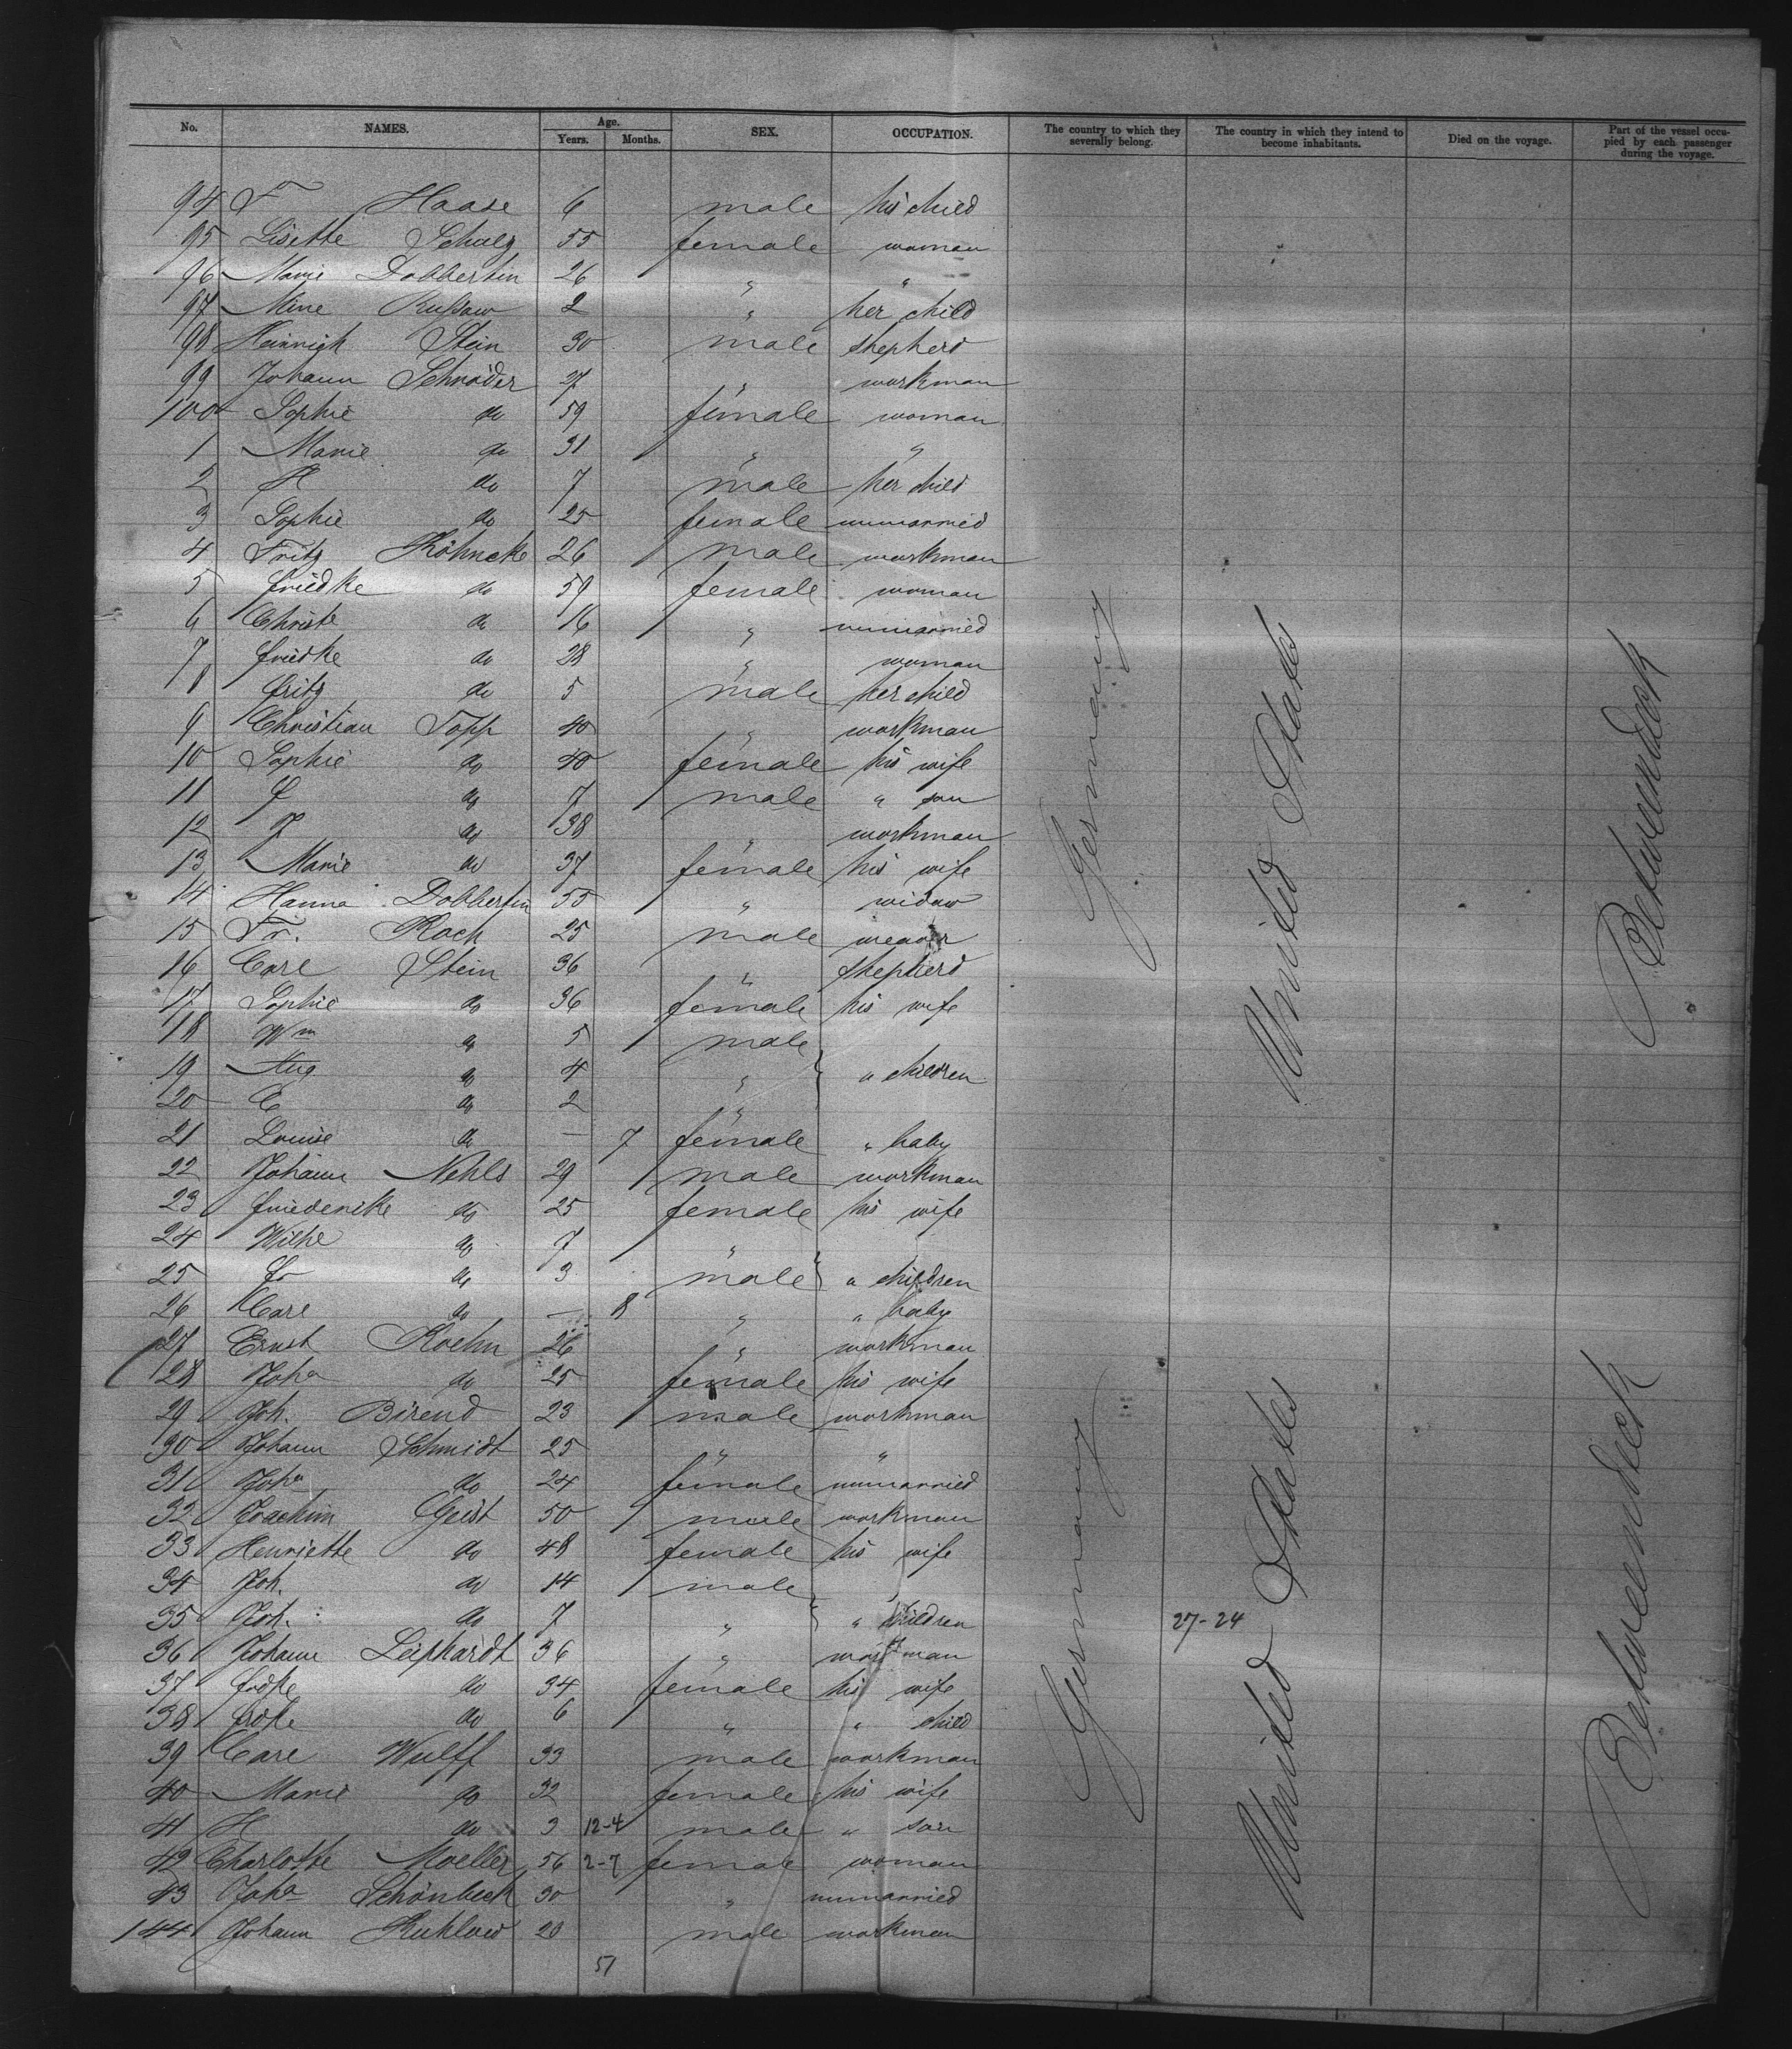 No. NAMES. Age. Years. Months. SEX. OCCUPATION. The country to which they severally belong. The country in which they intend to become inhabitants. Died on the voyage. Part of the vessel occupied by each passenger during the voyage.
94 F Haase 6 male his child
95 Lisette Schulz 55 female woman
96 Marie Dobbertin 26 " "
97 Mine Russow 2 " her child
98 Heinrich Stein 30 male shepherd
99 Johann Schröder 27 " workman
100 Sophie do 59 female woman
1 Marie do 31 " "
2 H do 7 male her child
3 Sophie do 25 female unmarried
4 Fritz Köhncke 26 male workman
5 friedke do 59 female woman
6 Christe do 16 " unmarried
7 friedke do 28 " woman
8 fritz do 5 male her child
9 Christian Topp 40 " workman
10 Sophie do 40 female his wife
11 f do 7 male " son
12 J do 38 " workman
13 Marie do 37 female his wife
14 Hanna Dobbertin 55 " widow
15 Fr. Koch 25 male weaver
16 Carl Stein 36 " shepherd
17 Sophie do 36 female his wife
18 Wm do 5 male
19 Aug do 4 " " children
20 E do 2 "
21 Louise do — 7 female " baby
22 Johann Nehls 29 male workman
23 friederike do 25 female his wife
24 Wilhe do 7 "
25 fr do 3 male " children
26 Carl do — 8 " " baby
27 Ernst Koehn 26 " workman
28 Joha do 25 female his wife
29 Joh. Birend 23 male workman
130 Johann Schmidt 25 " "
31 Joha do 24 female unmarried
32 Joachim Geist 50 male workman
33 Henriette do 48 female his wife
34 Joh. do 14 male
35 Joh. do 7 " " children
27-24
36 Johann Leiphardt 36 " workman
37 frdke do 34 female his wife
38 frdke do 6 " " child
39 Carl Wulff 33 male workman
40 Marie do 32 female his wife
41 H do 3 12-4 male " son
42 Charlotte Moeller 56 2-7 female woman
43 Joha Schönbeck 30 " unmarried
144 Johann Kuhlow 20 male workman
57
Germany United States Betweendeck
Germany United States Betweendeck